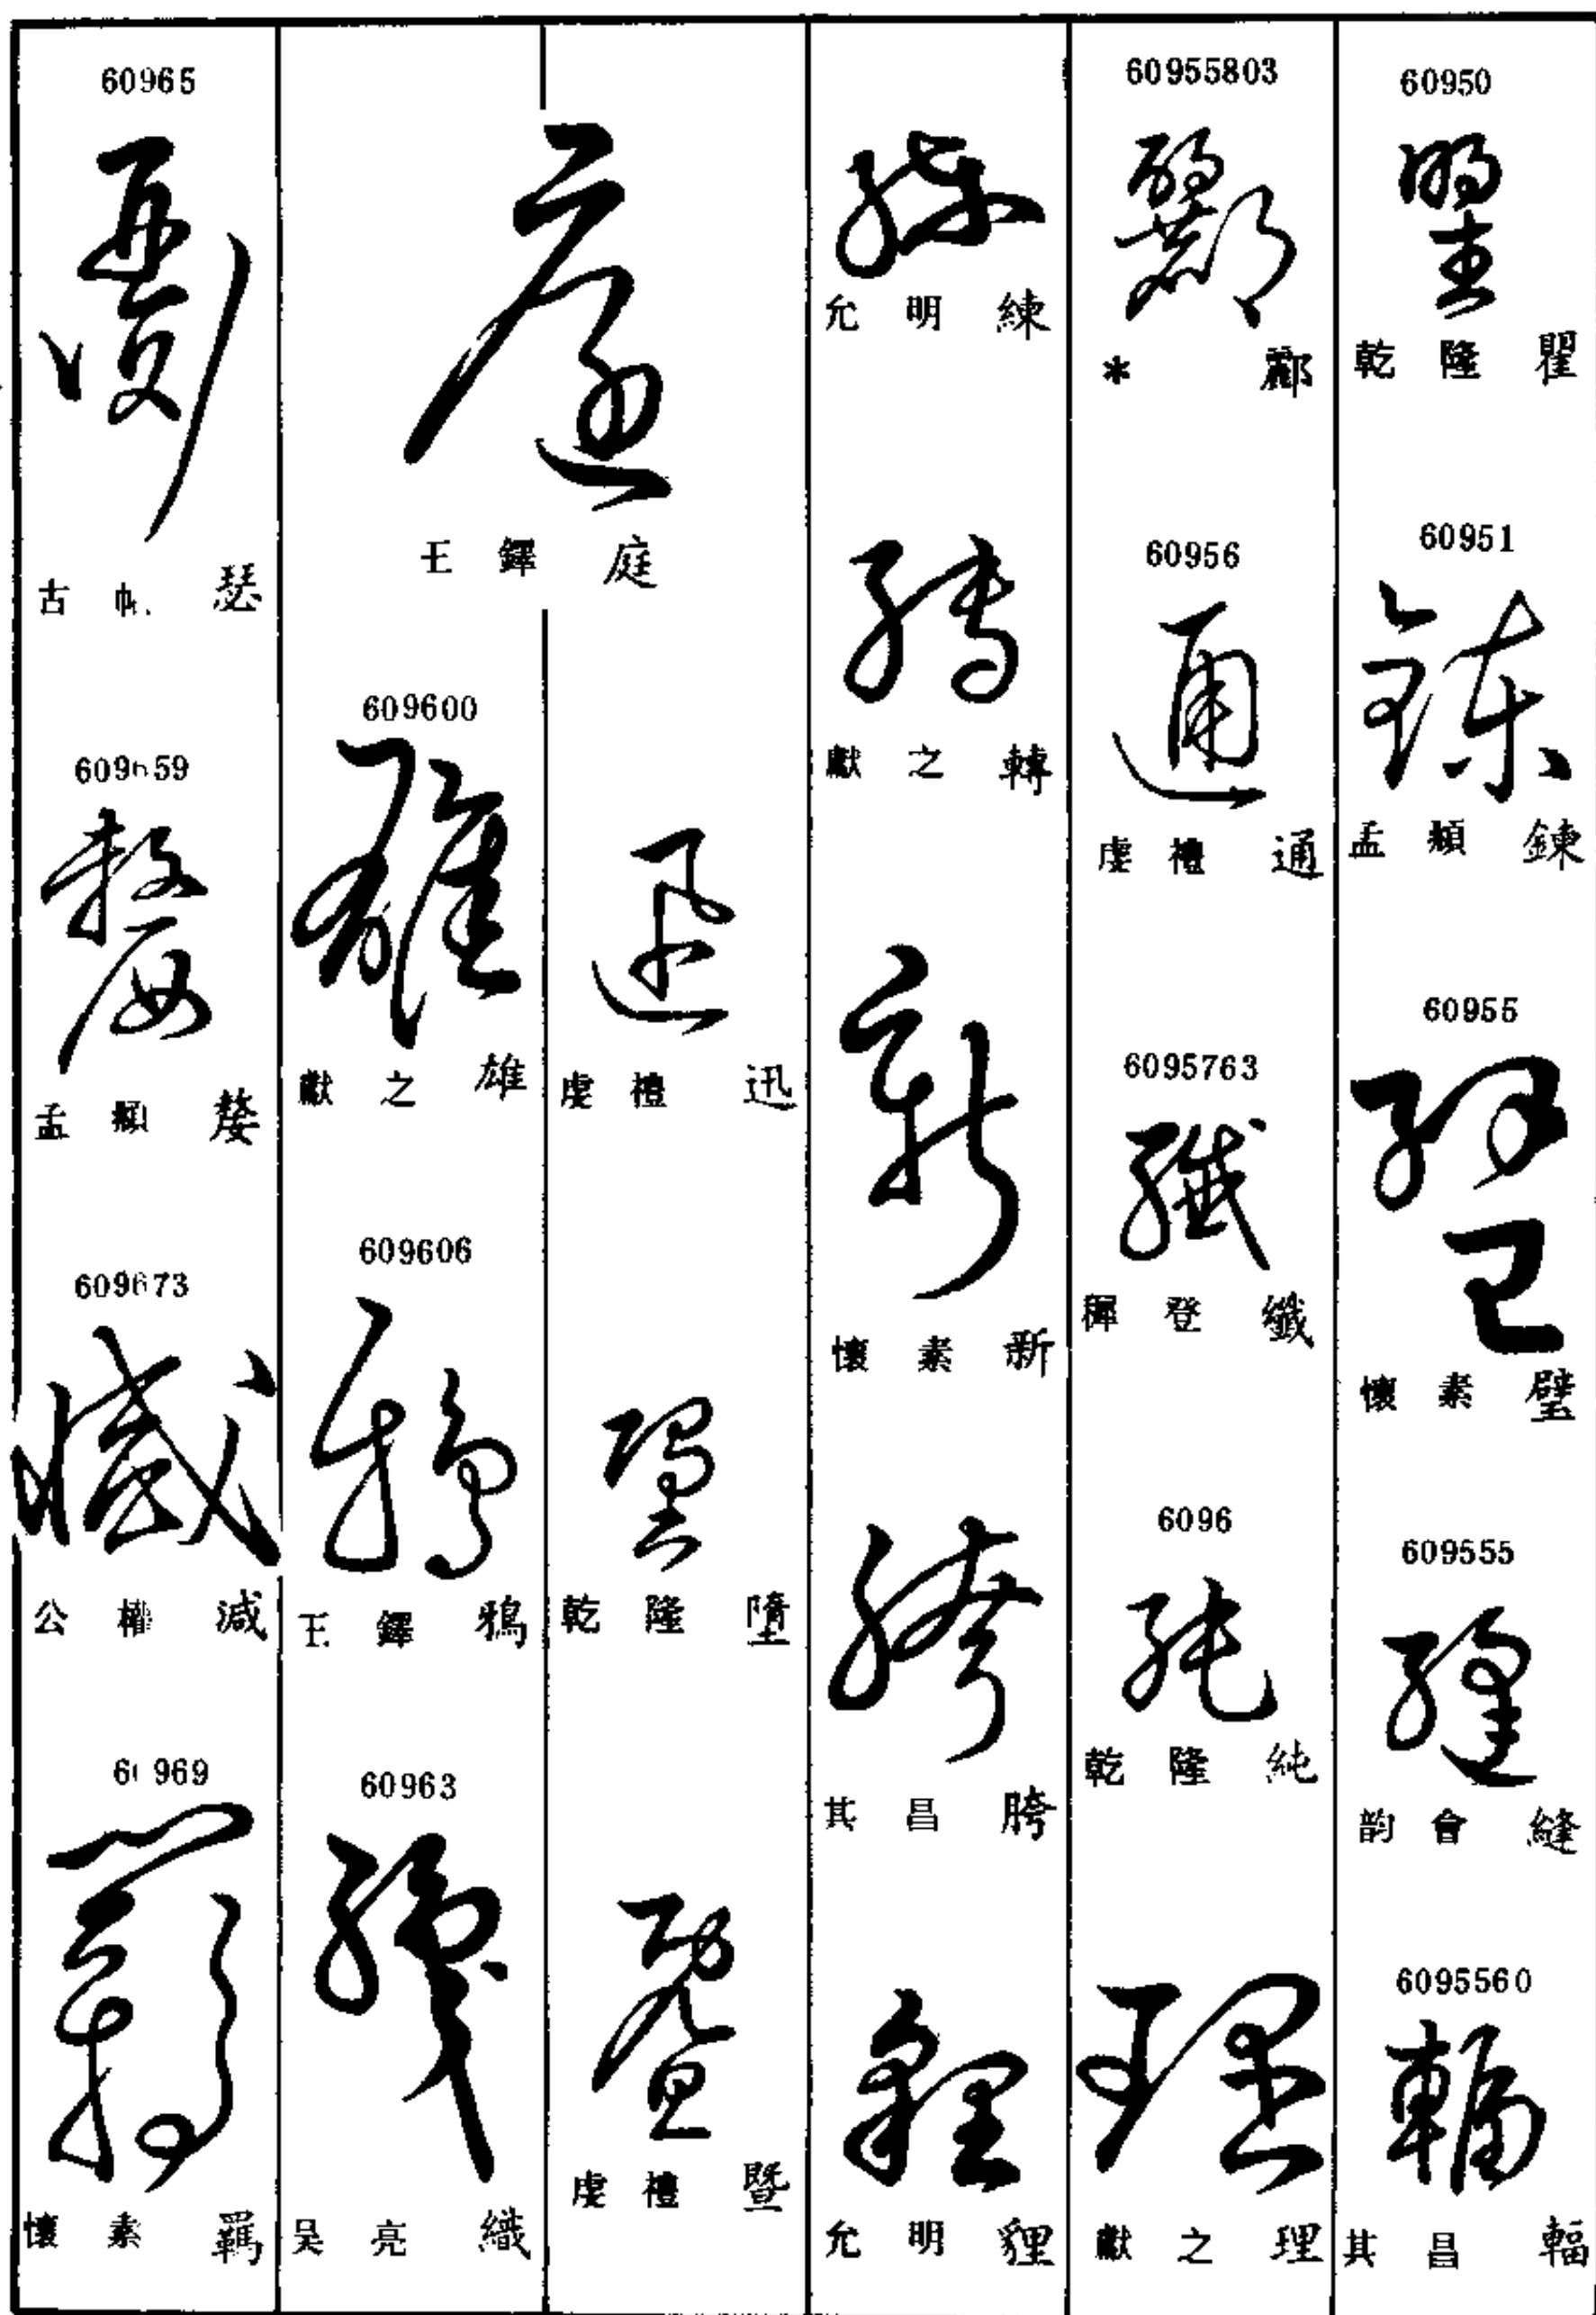 60950
乾隆 瞿
60951
孟頫 鍊
60955
懷素 璧
609555
韵會 縫
6095560
其昌 輻
60955803
* 酈
60956
虔禮 通
6095763
穉登 纖
6096
乾隆 純
獻之 理
允明 練
獻之 轉
懷素 新
其昌 胯
允明 貍
王鐸 庭
虔禮 迅
乾隆 墮
虔禮 暨
609600
獻之 雄
609606
王鐸 鴉
60963
吴亮 織
60965
古帖 瑟
609659
孟頫 嫠
609673
公權 減
60969
懷素 羈